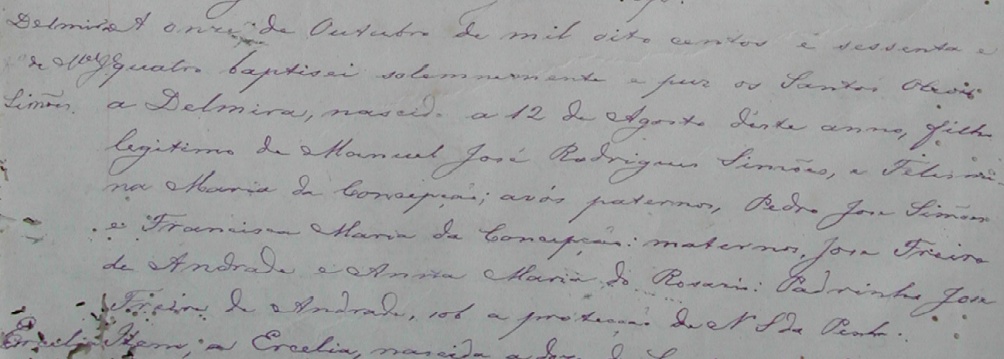 Delmira A onze de Outubro de mil oito centos e sessenta e
de Mel J. quatro baptisei solemnemente e puz os Santos Oleos
Simões. a Delmira, nascida a 12 de Agosto deste anno, filha
legitima de Manuel José Rodrigues Simões, e Felismi
na Maria da Conceição; avós paternos, Pedro Jose Simões
e Francisca Maria da Conceição: maternos, Jose Freire
de Andrade e Anna Maria do Rosario: Padrinho Jose
Freire de Andrade, sob a protecção de N S da Penha.
Ercelia Item, a Ercelia, nascida a